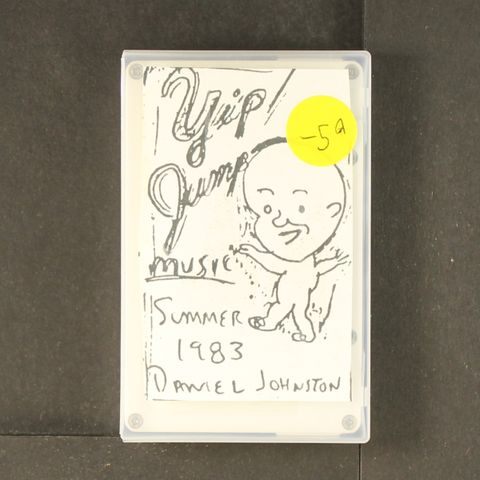 Yip/
Jump
MUSIC
SUMMER
1983
DANIEL JOHNSTON
-5a